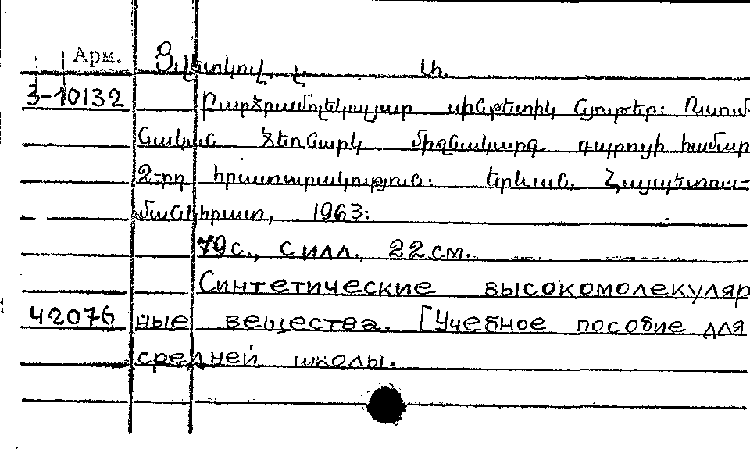 Арм. Ցվետկով, Լ. Ա.
3-10132 Բարձրամոլեկուլյար սինթետիկ նյութեր: Ուսում-
նական ձեռնարկ միջնակարգ դպրոցի համար
2-րդ հրատարակություն. Երևան, Հայպետուս-
մանկհրատ, 1963:
79 с., с илл., 22 см.
Синтетические высокомолекуляр
42076 ные вещества. [Учебное пособие для
средней школы.